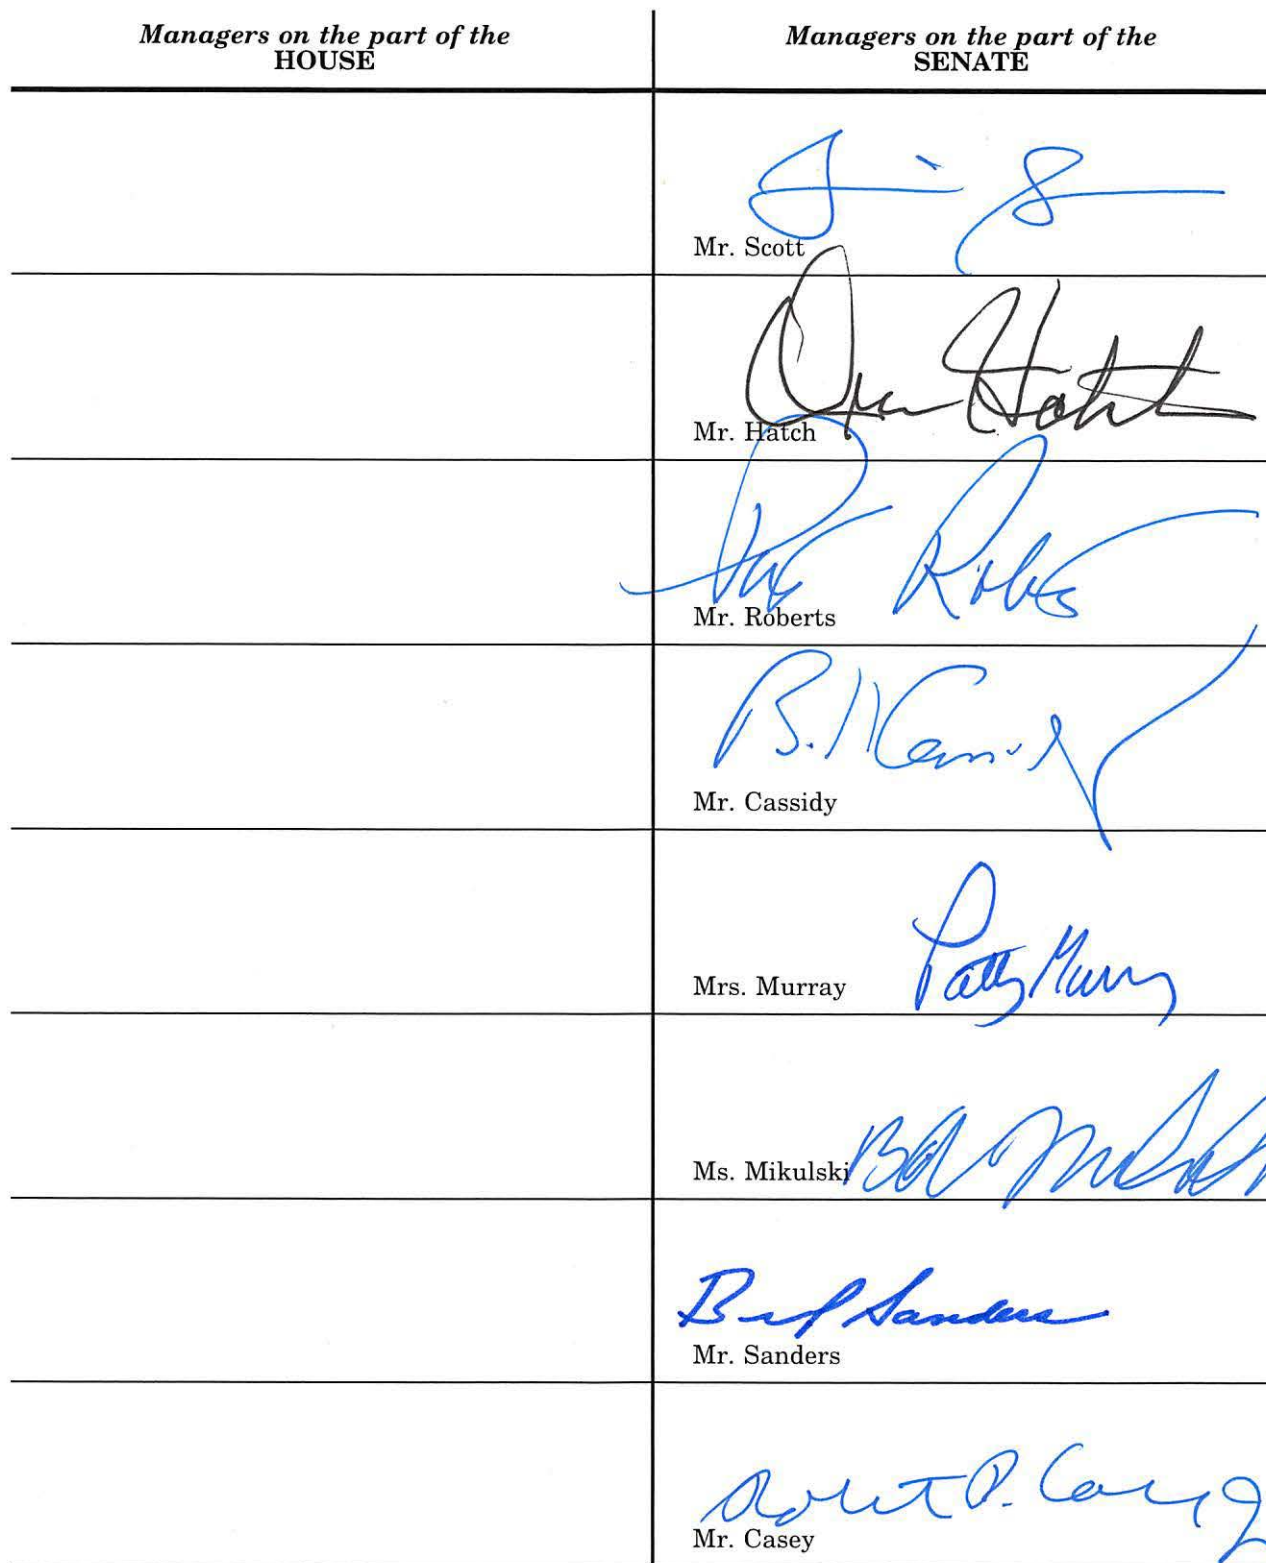 Managers on the part of the
HOUSE
Managers on the part of the
SENATE
Mr. Scott
Orrin Hatch
Mr. Hatch
Pat Roberts
Mr. Roberts
Bill Cassidy
Mr. Cassidy
Patty Murray
Mrs. Murray
Ms. Mikulski
Sanders
Mr. Sanders
Robert P. Casey
Mr. Casey